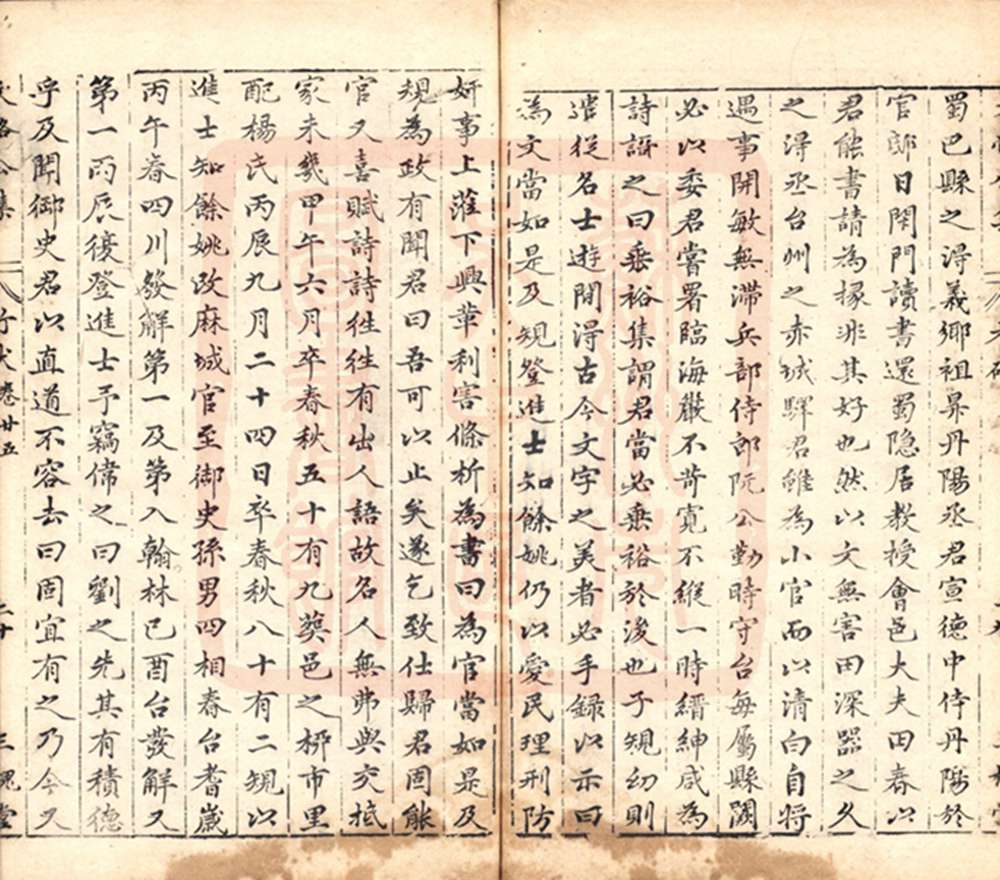 蜀巴縣之淂義鄉祖鼻丹陽丞君宣德中侍丹陽於
官邸日閉門讀書還蜀隐居教授會邑大夫田春以
君能書請為掾非其好也然以文無害田深器之久
之淂丞台州之赤城驛君雖為小官而以清白自將
遇事開敏無滯兵部侍郎阮公勤時守台每屬縣闕
必以委君嘗署臨海嚴不苛寛不縱一時縉紳咸為
詩謌之曰垂裕集謂君當必垂裕於後也子規幼則
遣従名士遊間淂古今文字之美者必手録以示曰
為文當如是及規登進士知餘姚仍以愛民理刑防
姧事上蒞下興革利害條析為書曰為官當如是及
規為政有聞君曰吾可以止矣遂乞致仕歸君固能
官又喜賦詩詩徃徃有出人語故名人無弗與交抵
家未幾甲午六月卒春秋五十有九葬邑之栁市里
配楊氏丙辰九月二十四日卒春秋八十有二規以
進士知餘姚改麻城官至御史孫男四相春台耆歲
丙午春四川發解第一及第入翰林己酉台發解又
第一丙辰復登進士予竊偉之曰劉之先其有積德
乎及聞御史君以直道不容去曰固宜有之乃今又
卷廿五